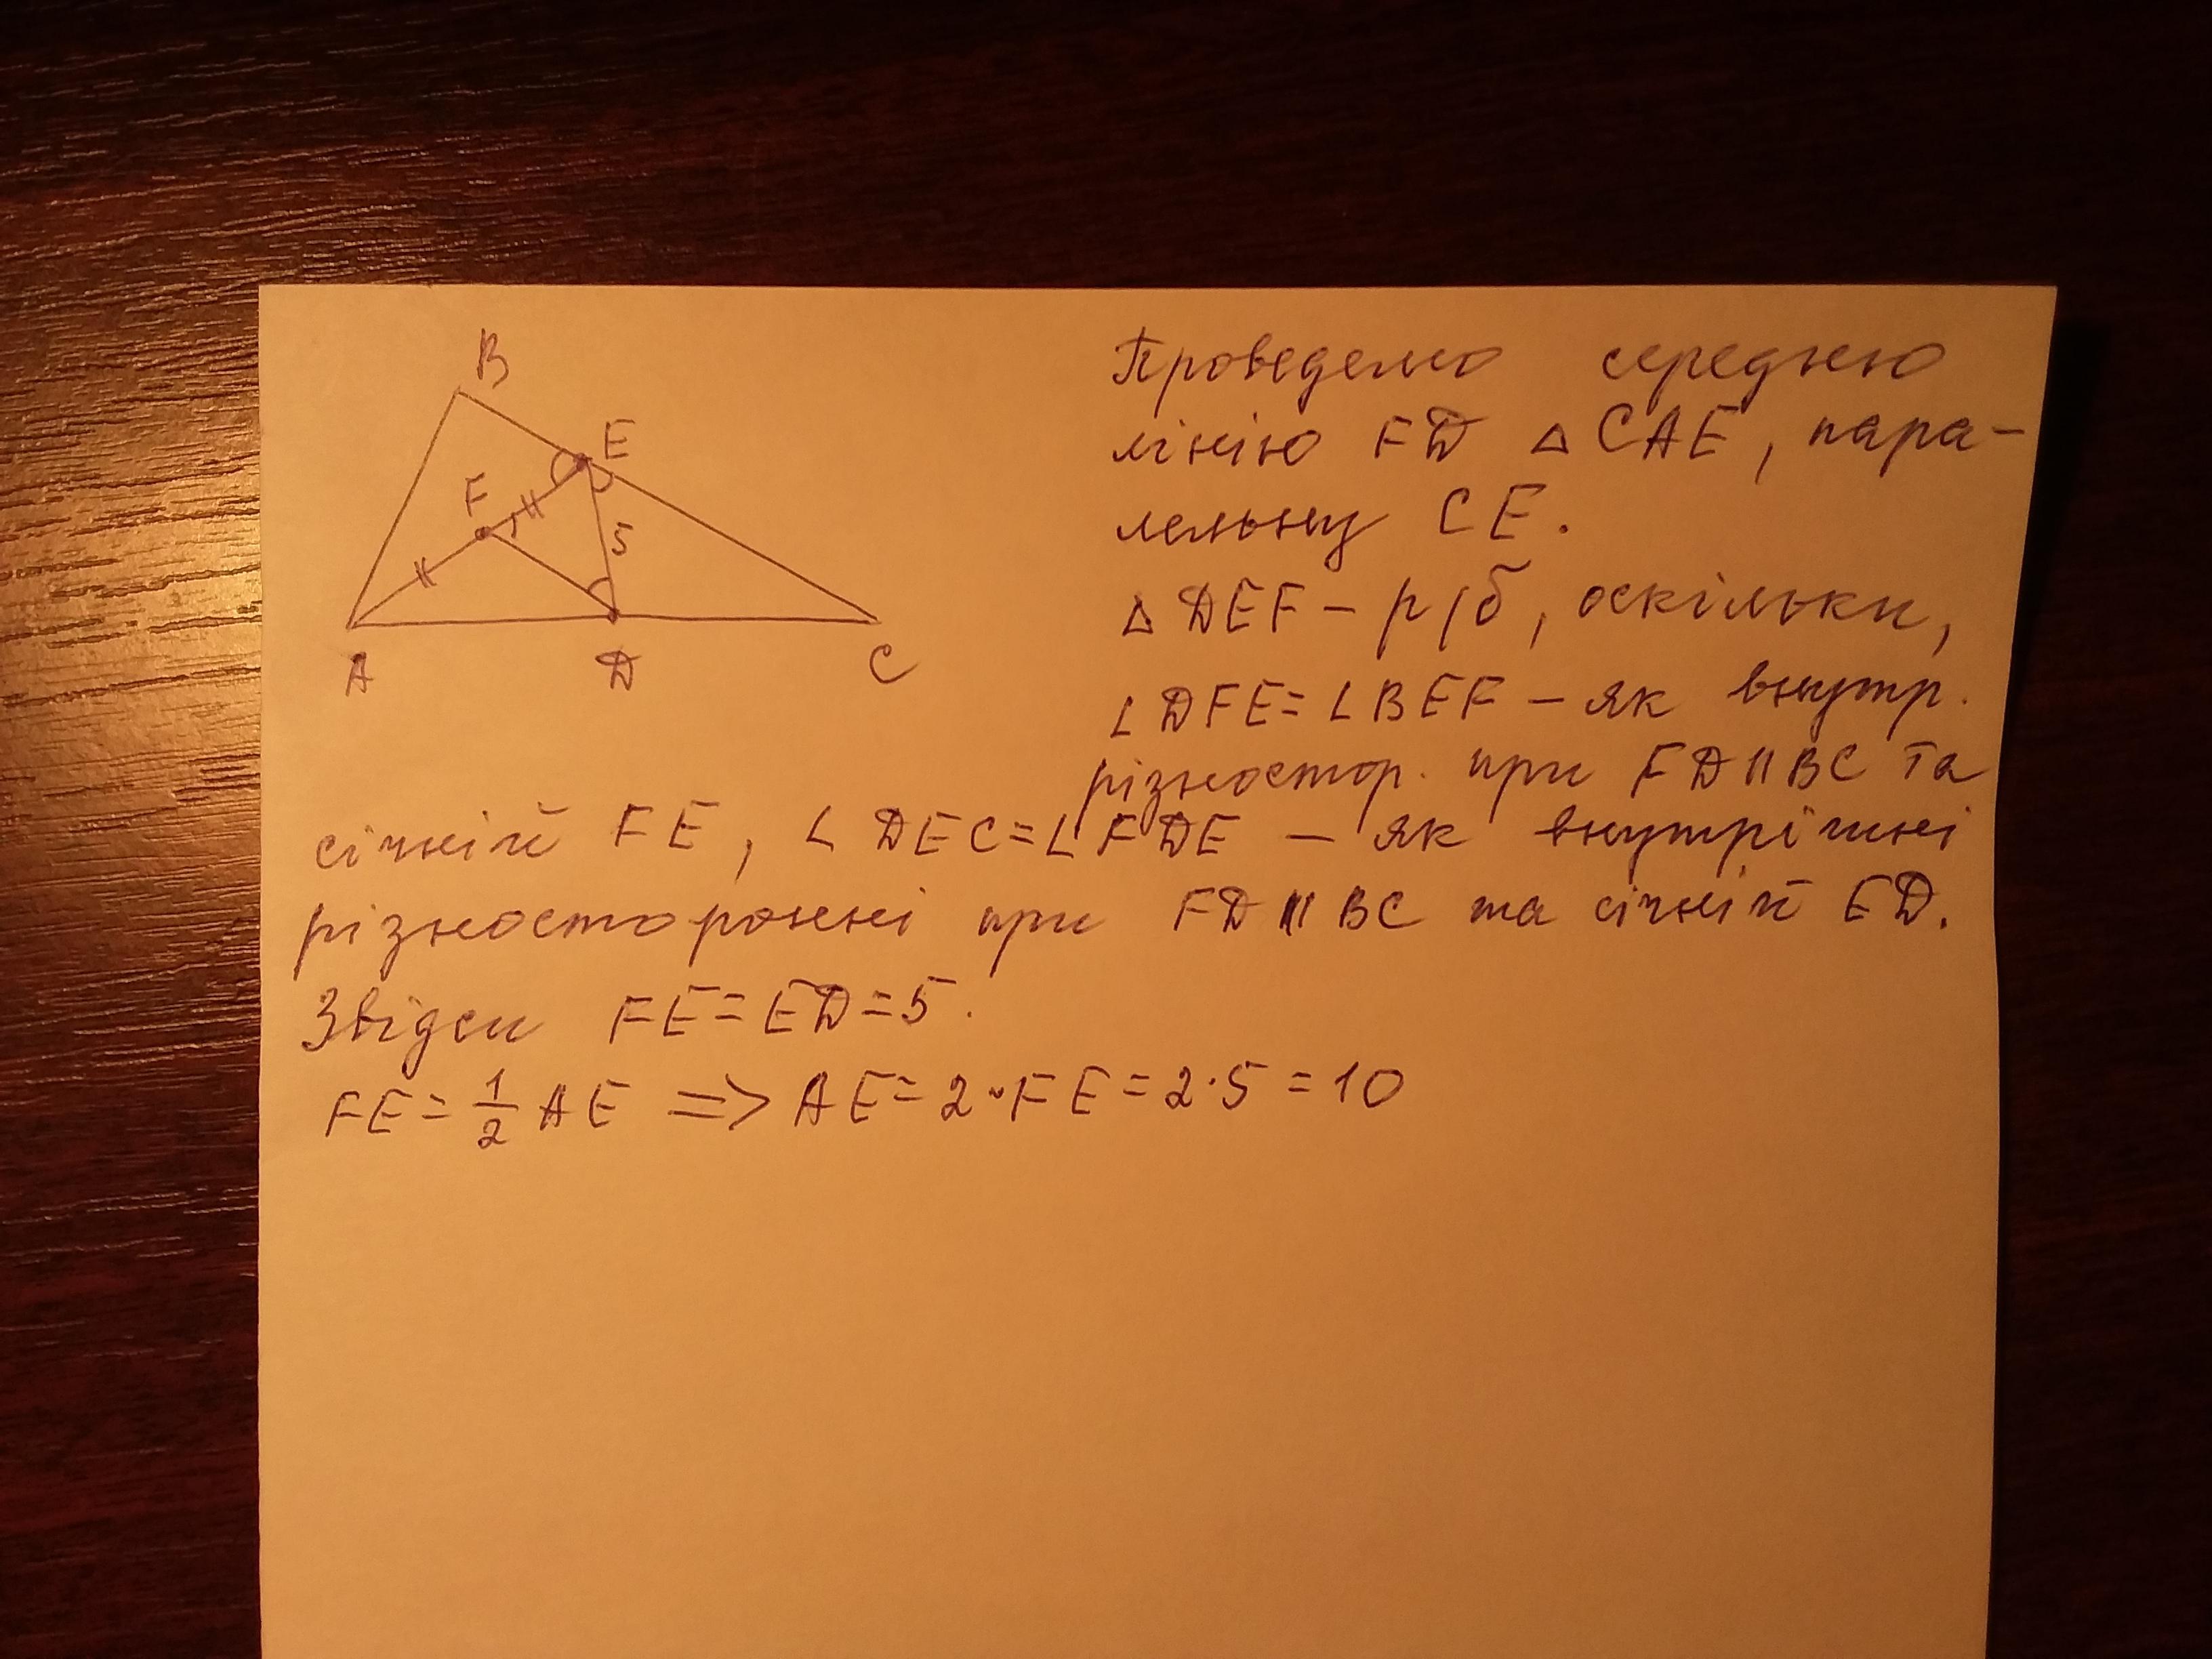 B
E
F
5
A
D
C
Проведемо середню
лінію FD △ CAE, пара-
лельну CE.
△ DEF – р/б, оскільки,
∠DFE=∠BEF – як внутр.
різностор. при FD||BC та
січній FE, ∠DEC=∠FDE – як внутрішні
різносторонні при FD||BC та січній ED.
Звідси FE=ED=5.
FE=1/2 AE => AE=2·FE=2·5=10